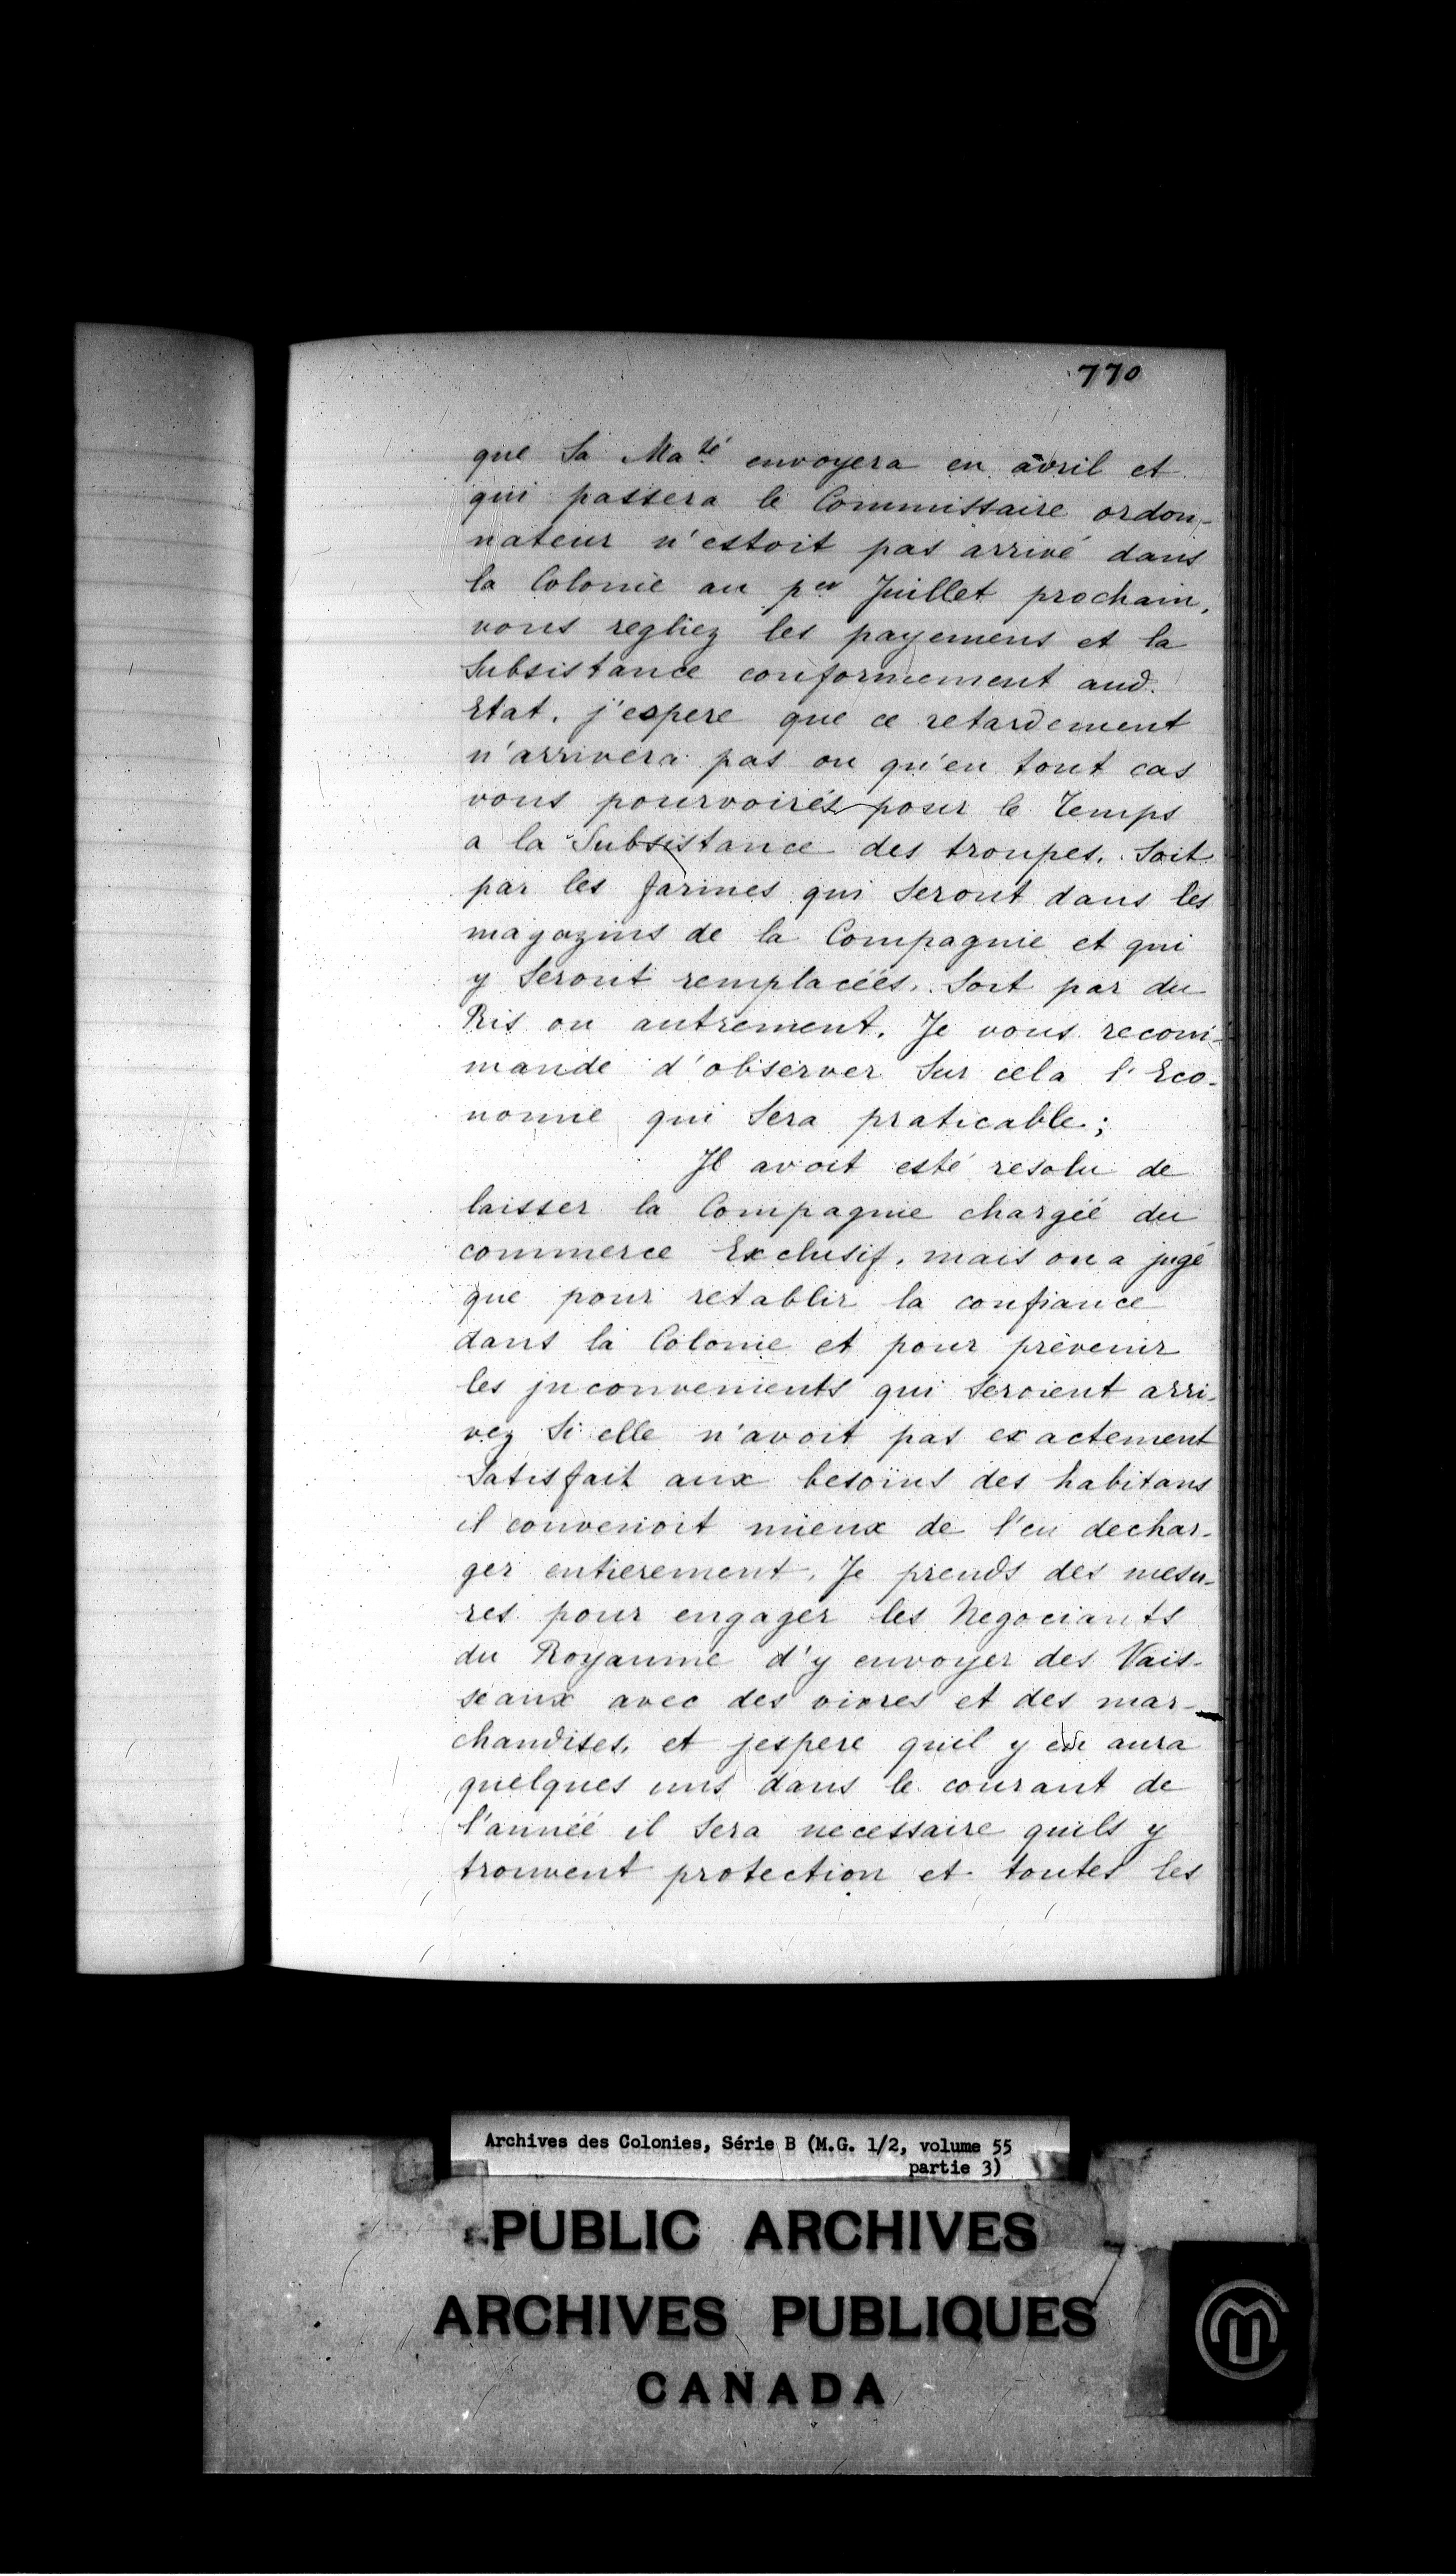 770
que Sa Ma.té envoyera en avril et
qui passera le Commissaire ordon-
nateur n'estoit pas arrivé dans
la Colonie au per Juillet prochain,
vous regliez les payemens et la
Subsistance conformement aud.
Etat. j'espere que ce retardement
n'arrivera pas ou qu'en tout cas
vous pourvoirés pour le Temps
a la Subsistance des troupes. Soit
par les farines qui Seront dans les
magazins de la Compagnie et qui
y Seront remplacéés. Soit par du
Ris ou autrement. Je vous recom-
mande d'observer Sur cela l'Eco-
nomie qui Sera praticable;
Il avoit esté resolu de
laisser la Compagnie chargéé du
commerce Exclusif. mais on a jugé
que pour retablir la confiance
dans la Colonie et pour prévenir
les jnconvenients qui Seroient arri-
vez Si elle n'avoit pas exactement
Satisfait aux besoins des habitans
il convenoit mieux de l'en dechar-
ger entierement. Je prends des mesu-
res pour engager les Negociants
du Royaume d'y envoyer des Vais-
seaux avec des vivres et des mar-
chandises, et jespere quil y en aura
quelques uns dans le courant de
l'annéé il Sera necessaire quils y
trouvent protection et toutes les
Archives des Colonies, Série B (M.G. 1/2, volume 55
partie 3)
PUBLIC ARCHIVES
ARCHIVES PUBLIQUES
CANADA